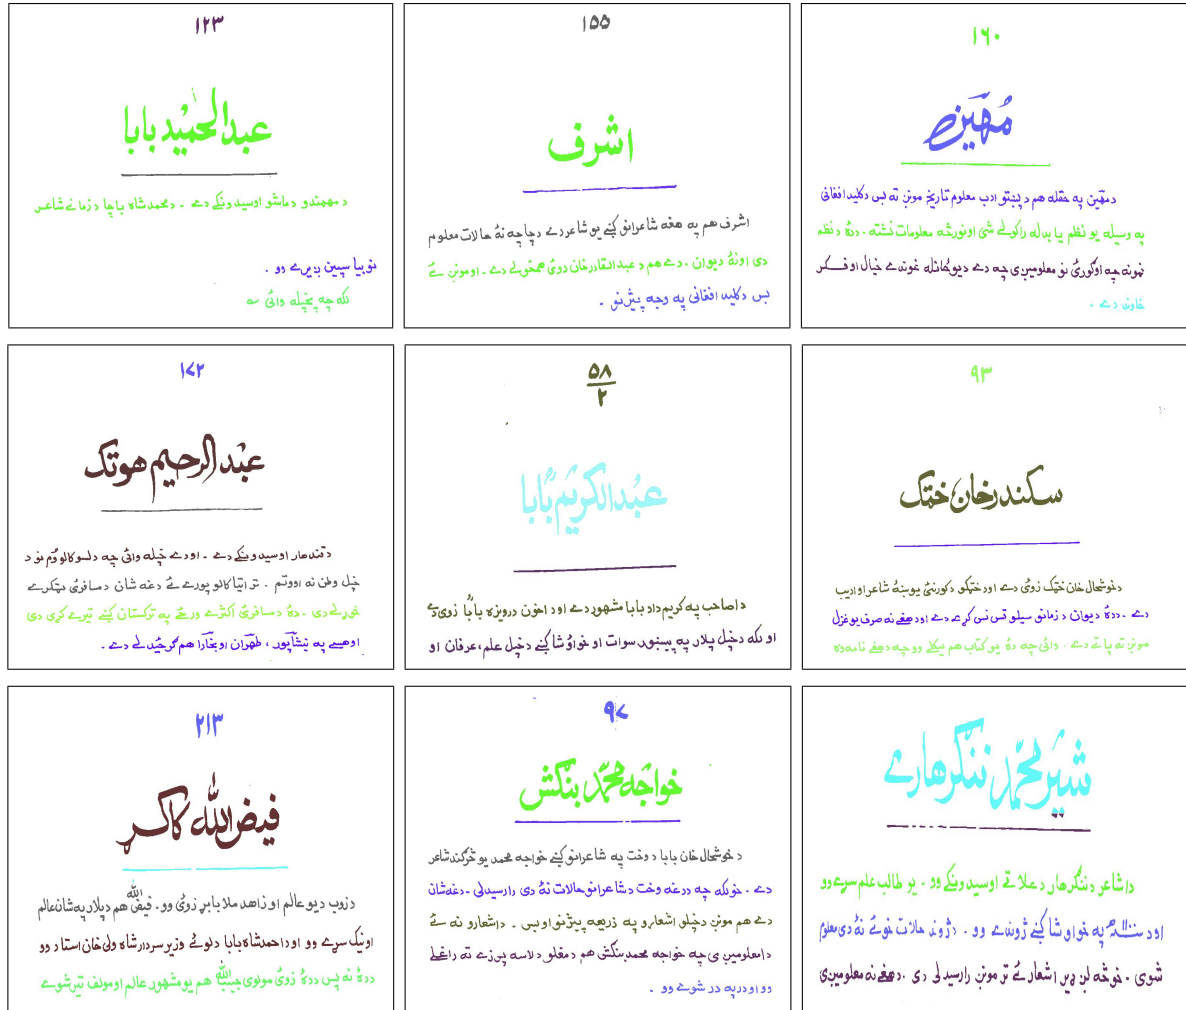 ۱۲۳
عبدالحمید بابا
د مهمندو د ماشو اوسیدونکے دے ۔ د محمد شاه باچا د زمانے شاعر
نو بیا سپین ږیرے وو ۔
لکه چه پخپله وائی
۱۵۵
اشرف
اشرف هم په هغه شاعرانو کښے یو شاعر دے د چا چه نۀ حالات معلوم
دی او نۀ دیوان ۔ دے هم د عبدالقادر خان دوئ همځولے دے ۔ او مونږ ئے
بس د کلید افغانی په وجه پیژنو ۔
۱۶۰
مُهَین
د مهین په حقله هم د پښتو ادب معلوم تاریخ مونږ ته بس د کلید افغانی
په وسیله یو نظم یا بدله راکولے شی او نور څه معلومات نشته ۔ د دۀ د نظم
نمونه چه اوګورئ نو معلومیږی چه دے د یو ځانله غوندے خیال او فکر
خاوند دے ۔
۱۷۲
عبدالرحیم هوتک
د قندهار اوسیدونکے دے ۔ او دے خپله وائی چه د لسو کالو ووم نو د
خپل وطن نه اووتم ۔ تر اتیا کالو پورے ئے دغه شان د مسافرئ ټکرے
خوړلے دی ۔ د دۀ مسافرئ اکثرے ورځے په ترکستان کښے تیرے کړی دی
او هسے په نیشاپور، طهران او بخارا هم ګرځیدلے دے ۔
۵۸
۲
عبدالکریم بابا
دا صاحب په کریم داد بابا مشهور دے او د اخون درویزه بابا زوی دے
او لکه د خپل پلار په پیښور سوات او خواؤشا کښے د خپل علم، عرفان او
۹۳
سکندر خان خټک
د خوشحال خان خټک زوئ دے او د خټکو د کورنئ یو ښۀ شاعر او ادیب
دے ۔ د دۀ دیوان د زمانو سیلو تس نس کړے دے او د هغے نه صرف یو غزل
مونږ ته پاتے دے ۔ وائی چه دۀ یو کتاب هم لیکلے وو چه د هغے نامه ده
۲۱۳
فیض الله کاکړ
د ژوب د یو عالم او زاهد ملا بابړ زوئ وو ۔ فیض الله هم د پلار په شان عالم
او نیک سړے وو او د احمد شاه بابا د لوئے وزیر سردار شاه ولی خان استاد وو
د دۀ نه پس د دۀ زوئ مولوی حبیب الله هم یو مشهور عالم او مولف تیر شوے
۹۷
خواجه محمد بنګش
د خوشحال خان بابا د وخت په شاعرانو کښے خواجه محمد یو څرګند شاعر
دے ۔ خو لکه چه د دغه وخت د شاعرانو حالات نۀ دی رارسیدلی ۔ دغه شان
دے هم مونږ د خپلو اشعارو په ذریعه پیژنو او بس ۔ د اشعارو نه ئے
دا معلومیږی چه خواجه محمد بنګش هم د مغلو د لاسه پوزے ته راغلے
وو او در په در شوے وو ۔
شیر محمد ننګرهارے
دا شاعر د ننګرهار د علاقے اوسیدونکے وو ۔ یو طالب علم سړے وو
او د په خواوشا کښے ژوندے وو ۔ د ژوند حالات خو ئے نۀ دی معلوم
شوی ۔ خو څه لږ ډیر اشعار ئے تر مونږ رارسیدلی دی ۔ د هغے نه معلومیږی